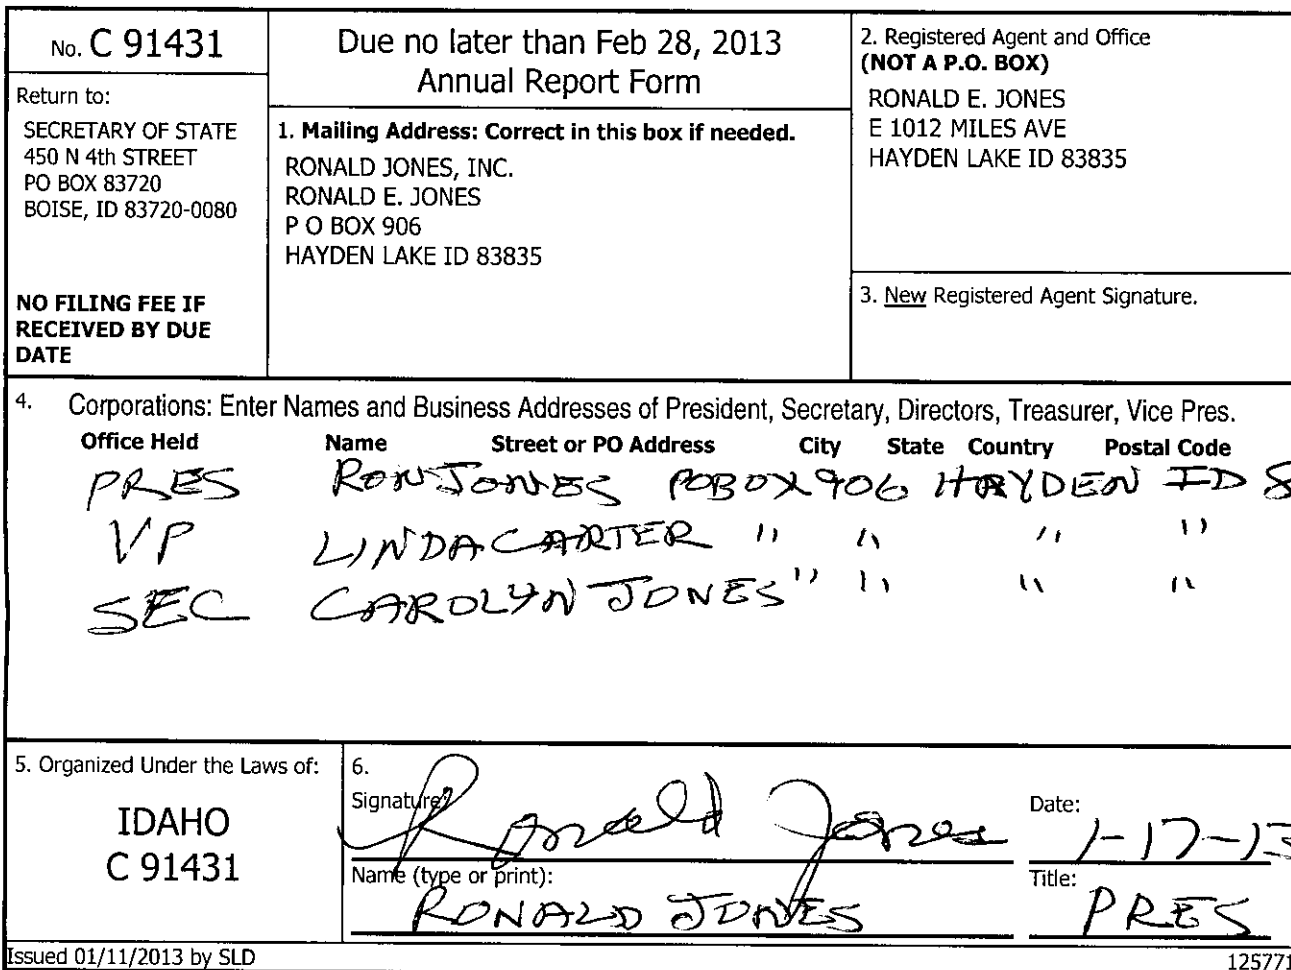 No. C 91431
Return to:
SECRETARY OF STATE
450 N 4th STREET
PO BOX 83720
BOISE, ID 83720-0080
NO FILING FEE IF
RECEIVED BY DUE
DATE
Due no later than Feb 28, 2013
Annual Report Form
1. Mailing Address: Correct in this box if needed.
RONALD JONES, INC.
RONALD E. JONES
P O BOX 906
HAYDEN LAKE ID 83835
2. Registered Agent and Office
(NOT A P.O. BOX)
RONALD E. JONES
E 1012 MILES AVE
HAYDEN LAKE ID 83835
3. New Registered Agent Signature.
4. Corporations: Enter Names and Business Addresses of President, Secretary, Directors, Treasurer, Vice Pres.
Office Held Name Street or PO Address City State Country Postal Code
PRES RON JONES POBOX 906 HAYDEN ID 8
VP LINDA CARTER " " " "
SEC CAROLYN JONES " " " "
5. Organized Under the Laws of:
IDAHO
C 91431
6.
Signature: Ronald Jones
Date: 1-17-13
Name (type or print): RONALD JONES
Title: PRES
Issued 01/11/2013 by SLD
125771